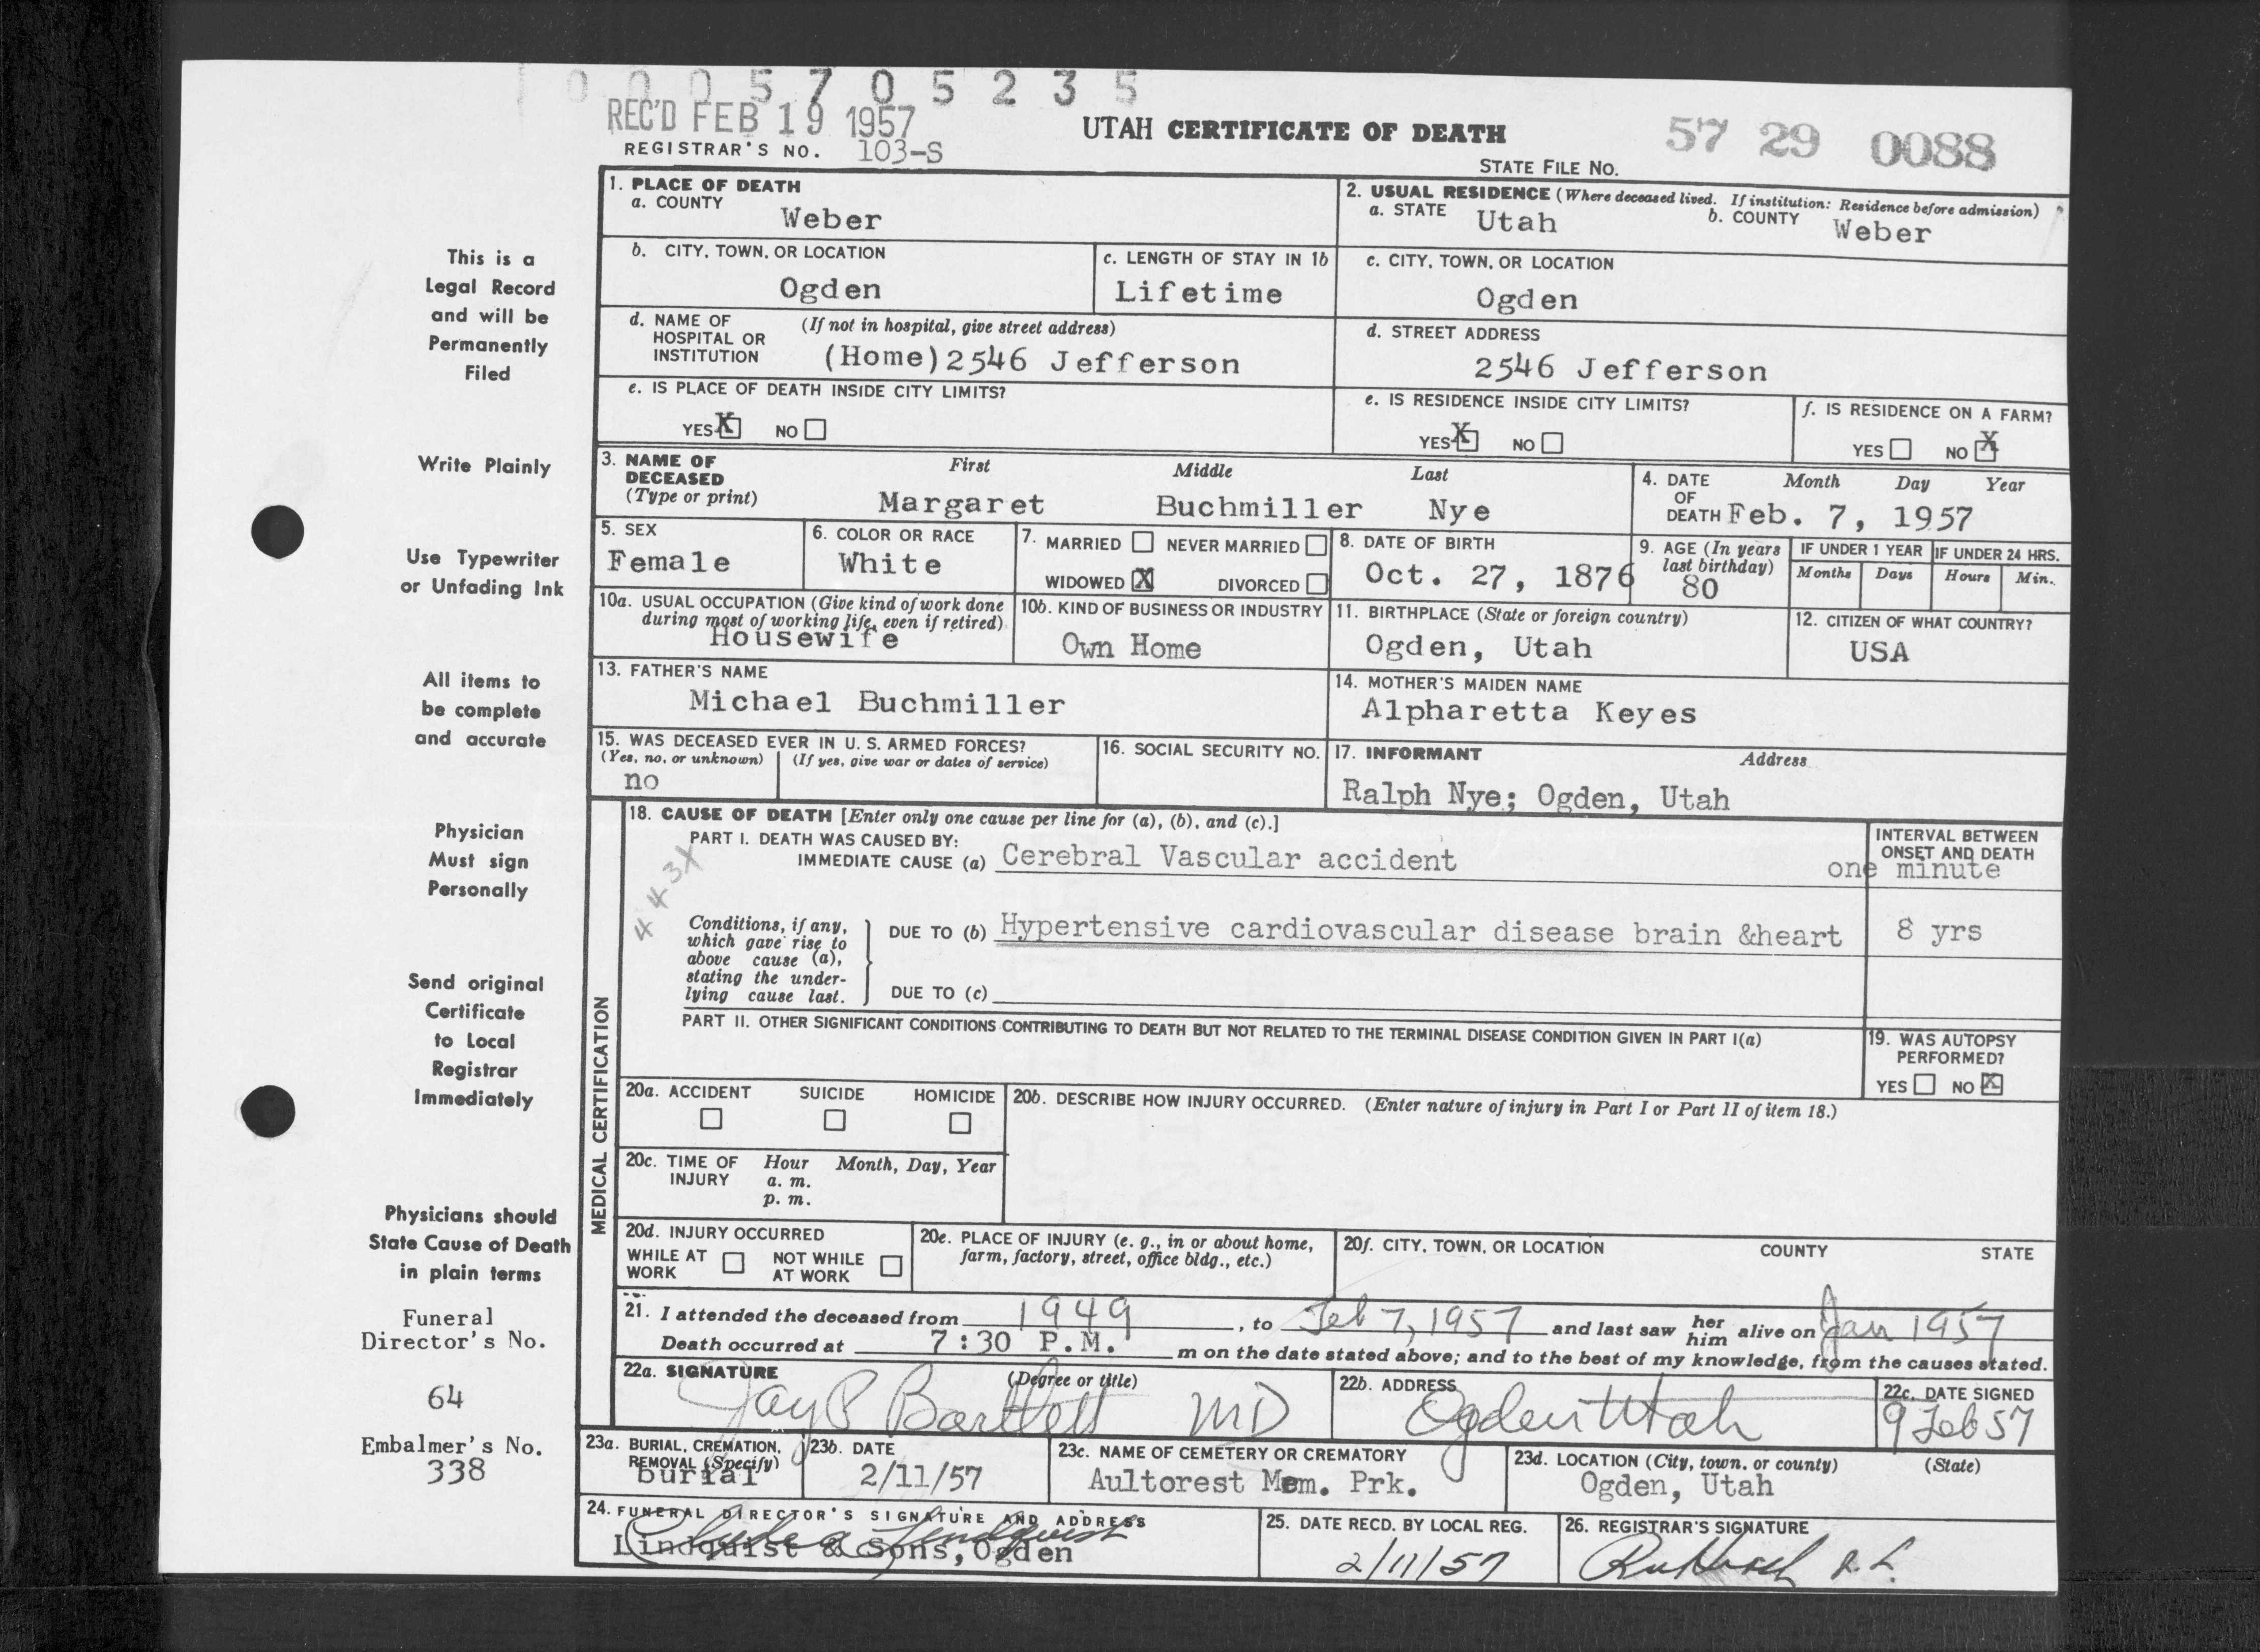 0005705235
REC'D FEB 19 1957
REGISTRAR'S NO. 103-S
UTAH CERTIFICATE OF DEATH
STATE FILE NO. 57 29 0088
This is a
Legal Record
and will be
Permanently
Filed
Write Plainly
Use Typewriter
or Unfading Ink
All items to
be complete
and accurate
Physician
Must sign
Personally
Send original
Certificate
to Local
Registrar
Immediately
Physicians should
State Cause of Death
in plain terms
Funeral
Director's No.
64
Embalmer's No.
338
1. PLACE OF DEATH
a. COUNTY
Weber
2. USUAL RESIDENCE (Where deceased lived. If institution: Residence before admission)
a. STATE Utah b. COUNTY Weber
b. CITY, TOWN, OR LOCATION
Ogden
c. LENGTH OF STAY IN 1b
Lifetime
c. CITY, TOWN, OR LOCATION
Ogden
d. NAME OF HOSPITAL OR INSTITUTION (If not in hospital, give street address)
(Home)2546 Jefferson
d. STREET ADDRESS
2546 Jefferson
e. IS PLACE OF DEATH INSIDE CITY LIMITS?
YES X NO
e. IS RESIDENCE INSIDE CITY LIMITS?
YES X NO
f. IS RESIDENCE ON A FARM?
YES NO X
3. NAME OF DECEASED (Type or print)
First Middle Last
Margaret Buchmiller Nye
4. DATE OF DEATH Month Day Year
Feb. 7, 1957
5. SEX
Female
6. COLOR OR RACE
White
7. MARRIED NEVER MARRIED
WIDOWED X DIVORCED
8. DATE OF BIRTH
Oct. 27, 1876
9. AGE (In years last birthday)
80
IF UNDER 1 YEAR
Months Days
IF UNDER 24 HRS.
Hours Min.
10a. USUAL OCCUPATION (Give kind of work done during most of working life, even if retired)
Housewife
10b. KIND OF BUSINESS OR INDUSTRY
Own Home
11. BIRTHPLACE (State or foreign country)
Ogden, Utah
12. CITIZEN OF WHAT COUNTRY?
USA
13. FATHER'S NAME
Michael Buchmiller
14. MOTHER'S MAIDEN NAME
Alpharetta Keyes
15. WAS DECEASED EVER IN U. S. ARMED FORCES?
(Yes, no, or unknown) (If yes, give war or dates of service)
no
16. SOCIAL SECURITY NO.
17. INFORMANT Address
Ralph Nye; Ogden, Utah
MEDICAL CERTIFICATION
18. CAUSE OF DEATH [Enter only one cause per line for (a), (b), and (c).]
PART I. DEATH WAS CAUSED BY:
IMMEDIATE CAUSE (a) Cerebral Vascular accident
INTERVAL BETWEEN ONSET AND DEATH
one minute
443X
Conditions, if any, which gave rise to above cause (a), stating the underlying cause last.
DUE TO (b) Hypertensive cardiovascular disease brain &heart
8 yrs
DUE TO (c)
PART II. OTHER SIGNIFICANT CONDITIONS CONTRIBUTING TO DEATH BUT NOT RELATED TO THE TERMINAL DISEASE CONDITION GIVEN IN PART I(a)
19. WAS AUTOPSY PERFORMED?
YES NO X
20a. ACCIDENT SUICIDE HOMICIDE
20b. DESCRIBE HOW INJURY OCCURRED. (Enter nature of injury in Part I or Part II of item 18.)
20c. TIME OF INJURY Hour Month, Day, Year
a. m.
p. m.
20d. INJURY OCCURRED
WHILE AT WORK NOT WHILE AT WORK
20e. PLACE OF INJURY (e. g., in or about home, farm, factory, street, office bldg., etc.)
20f. CITY, TOWN, OR LOCATION COUNTY STATE
21. I attended the deceased from 1949, to Feb 7, 1957 and last saw her him alive on Jan 1957
Death occurred at 7:30 P.M. m on the date stated above; and to the best of my knowledge, from the causes stated.
22a. SIGNATURE (Degree or title)
Jay P Bartlett MD
22b. ADDRESS
Ogden Utah
22c. DATE SIGNED
9 Feb 57
23a. BURIAL, CREMATION, REMOVAL (Specify)
burial
23b. DATE
2/11/57
23c. NAME OF CEMETERY OR CREMATORY
Aultorest Mem. Prk.
23d. LOCATION (City, town, or county) (State)
Ogden, Utah
24. FUNERAL DIRECTOR'S SIGNATURE AND ADDRESS
Lindquist & Sons, Ogden
25. DATE RECD. BY LOCAL REG.
2/11/57
26. REGISTRAR'S SIGNATURE